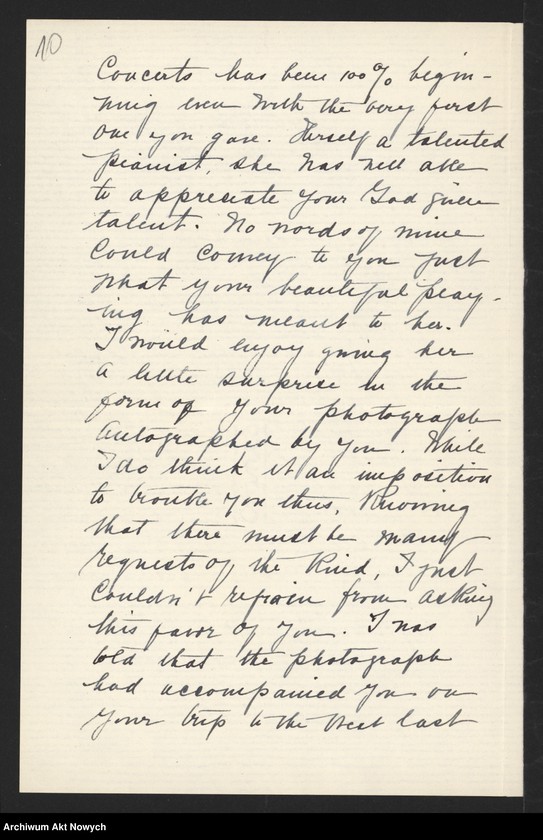 10
Concerts has been 100% begin-
ning even with the very first
one you gave. Herself a talented
pianist, she has well able
to appreciate your God given
talent. No words of mine
could convey to you just
what your beautiful play-
ing has meant to her.
I would enjoy giving her
a little surprise in the
form of your photograph
autographed by you. While
I do think it an imposition
to trouble you thus, knowing
that there must be many
requests of the kind, I just
couldn't refrain from asking
this favor of you. I was
told that the photograph
had accompanied you on
your trip to the West last
Archiwum Akt Nowych